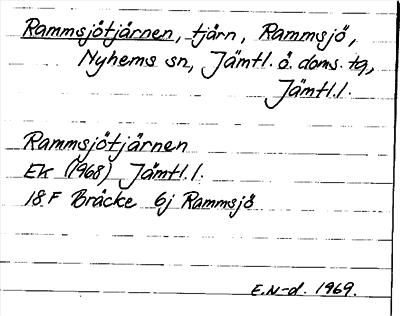 Rammsjötjärnen, tjärn, Rammsjö,
Nyhems sn, Jämtl. ö. doms. tg,
Jämtl. l.
Rammsjötjärnen
EK (1968) Jämtl. l.
18 F Bräcke 6j Rammsjö
E.N-d. 1969.